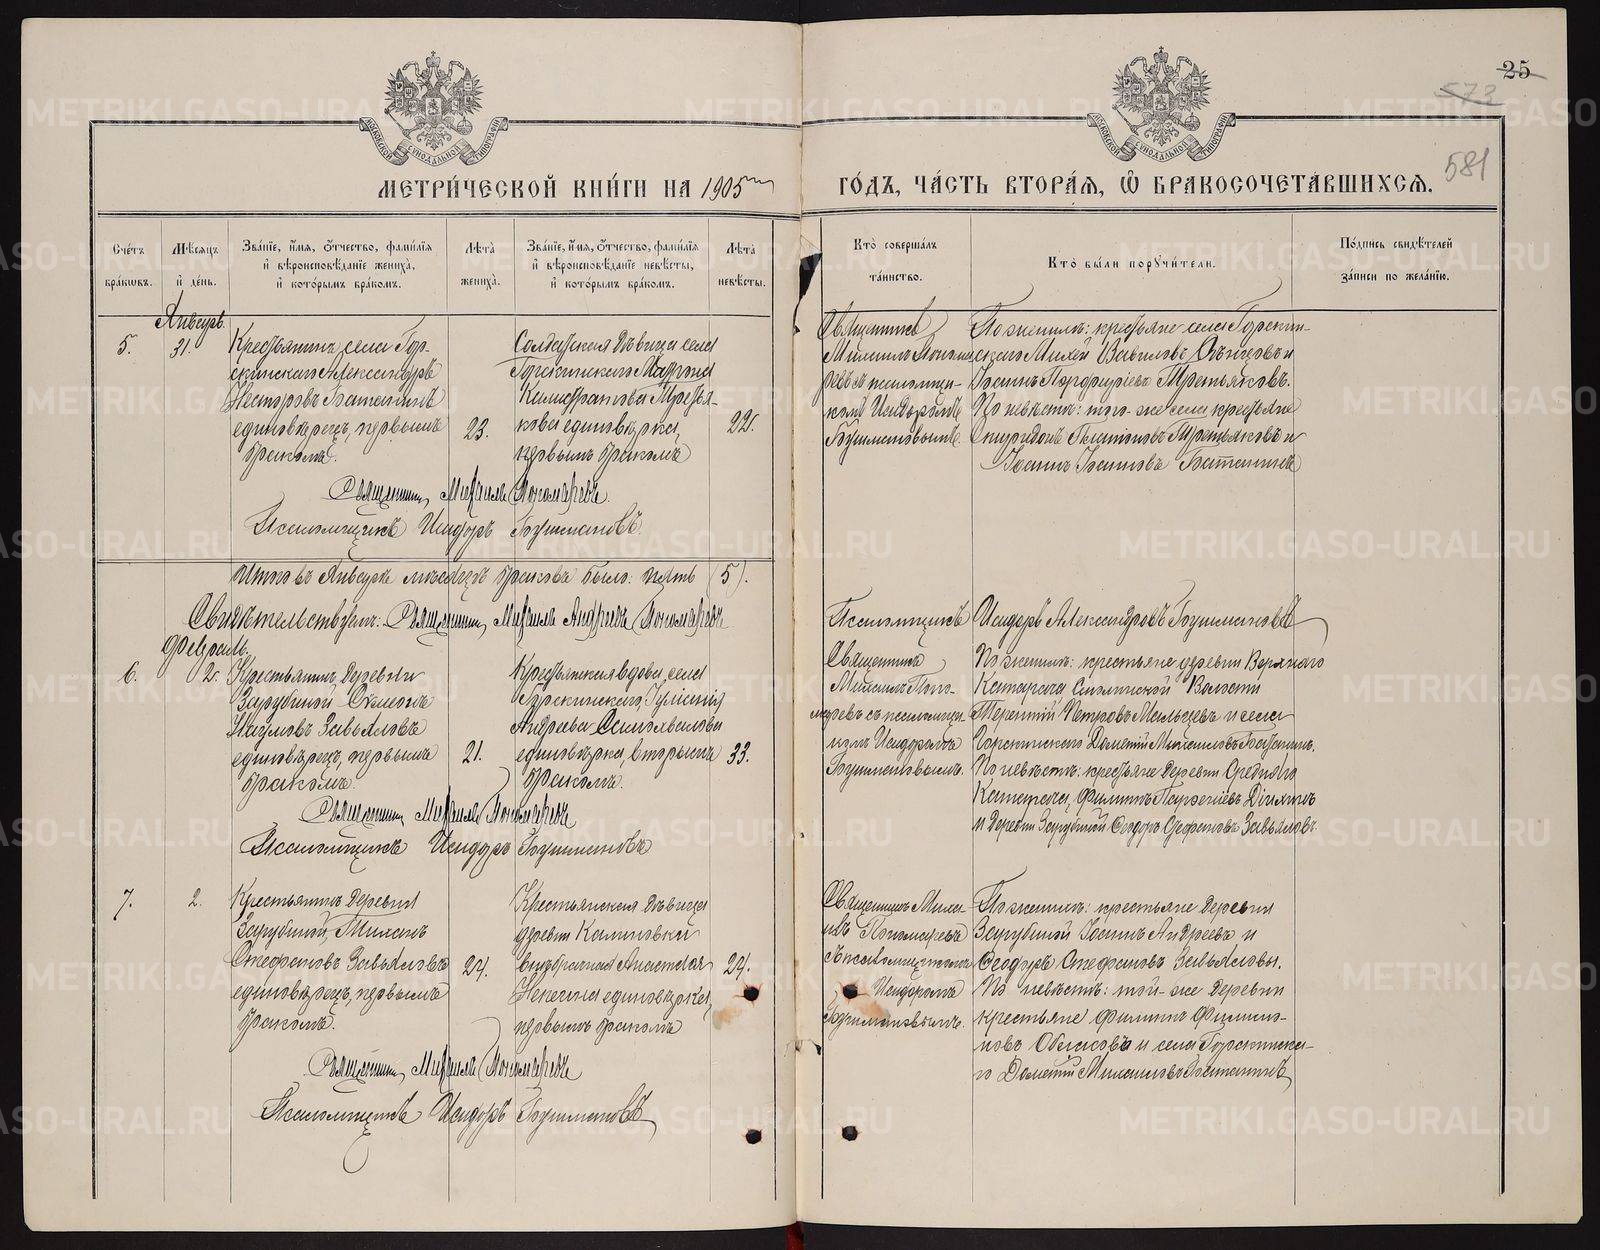 25
573
581
МОСКОВСКОЙ СѴНОДАЛЬНОЙ ТИПОГРАФІИ
МОСКОВСКОЙ СѴНОДАЛЬНОЙ ТИПОГРАФІИ
МЕТРИ́ЧЕСКОЙ КНИ́ГИ НА 1905 ГО́ДЪ, ЧА́СТЬ ВТОРА́Я, Ѽ БРАКОСОЧЕТА́ВШИХСЯ.
Сче́тъ бра́кωвъ.
Мѣ́сяцъ и҆ де́нь.
Зва́нїе, и҆́мя, ѻ҆́тчество, фамилїя и҆ вѣроисповѣ́данїе жениха̀, и҆ кото́рымъ бра́комъ.
Лѣ́та жениха̀.
Зва́нїе, и҆́мя, ѻ҆́тчество, фами́лїя и҆ вѣроисповѣ́данїе невѣ́сты, и҆ кото́рымъ бра́комъ.
Лѣ́та невѣ́сты.
Кто̀ соверша́лъ та́инство.
Кто̀ бы́ли порꙋчи́тели.
По́дпись свидѣ́телей за́писи по жела́нїю.
Январь.
5.
31.
Крестьянинъ села Гор-
скинскаго Александръ
Несторовъ Батенинъ
единовѣрецъ, первымъ
бракомъ.
23.
Солдатская дѣвица села
Калистратова Третья-
кова единовѣрка,
первымъ бракомъ
22.
Священникъ
Михаилъ Понома-
ревъ съ псаломщи-
комъ Исидоромъ
По женихѣ: крестьяне села Горскин-
скаго
Іоаннъ Порфиріевъ Третьяковъ.
По невѣстѣ: того-же села крестьяне
Спиридонъ Третьяковъ и
Іоаннъ Іоанновъ Батенинъ
Священникъ Михаилъ Пономаревъ
Псаломщикъ Исидоръ
Итого въ Январѣ мѣсяцѣ браковъ было: пять (5).
Свидѣтельствуемъ: Священникъ Михаилъ Андреевъ Пономаревъ
Псаломщикъ Исидоръ Александровъ
Февраль.
6.
2.
Крестьянинъ деревни
Зарубиной Симеонъ
Наумовъ Завьяловъ
единовѣрецъ, первымъ
бракомъ.
21.
Крестьянская вдова, села
Горскинскаго, Іуліанія
Андреева
единовѣрка, вторымъ
бракомъ.
33.
Священникъ
Михаилъ Поно-
маревъ съ псаломщи-
комъ Исидоромъ
По женихѣ: крестьяне деревни Верхняго
Катарача Смолинской Волости
Терентій Петровъ Мальцевъ и села
Горскинскаго Дометій Михаиловъ Батенинъ.
По невѣстѣ: крестьяне деревни Средняго
Катарача, Филиппъ
и деревни Зарубиной Ѳеодоръ Стефановъ Завьяловъ.
Священникъ Михаилъ Пономаревъ
Псаломщикъ Исидоръ
7.
2.
Крестьянинъ деревни
Зарубиной,
Стефановъ Завьяловъ
единовѣрецъ, первымъ
бракомъ.
24.
Крестьянская дѣвица
деревни Калиновки
внѣбрачная Анастасія
единовѣрка,
первымъ бракомъ
24.
Священникъ Миха-
илъ Пономаревъ
съ псаломщикомъ
Исидоромъ
По женихѣ: крестьяне деревни
Зарубиной Іоаннъ Андреевъ и
Ѳеодоръ Стефановъ Завьяловы.
По невѣстѣ: той-же деревни
крестьяне Филиппъ Филип-
повъ и села Горскинска-
го Дометій Михаиловъ Батенинъ
Священникъ Михаилъ Пономаревъ
Псаломщикъ Исидоръ
METRIKI.GASO-URAL.RU